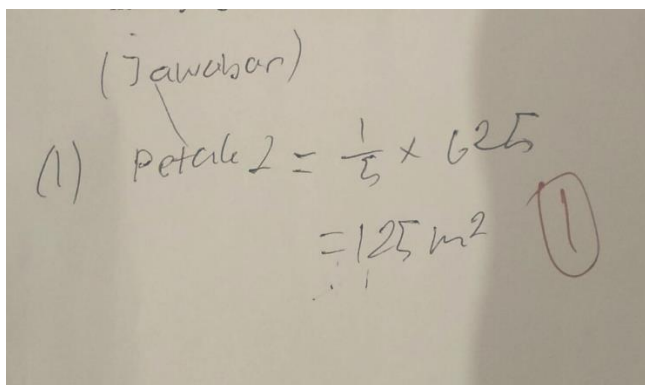 (Jawaban)
(1) Petak 2 = 1/5 × 625
= 125 m²
1